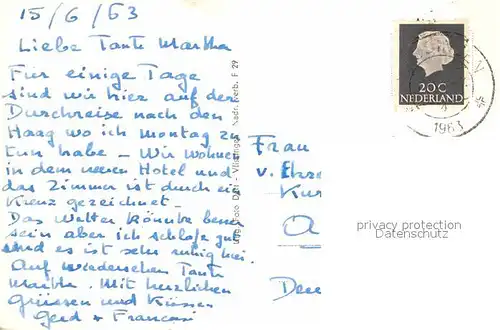 15/6/63
Liebe Tante Martha
Für einige Tage
sind wir hier auf der
Durchreise nach den
Haag wo ich montag zu
tun habe - Wir wohnen
in dem neuen Hotel und
das Zimmer ist durch ein
Kreuz gezeichnet -
Das Wetter könnte besser
sein aber ich schlafe gut
und es ist sehr ruhig hier.
Auf wiedersehen Tante
Martha. Mit herzlichen
Grüssen und Küssen
Gerd +
Vlissingen Nadr. verb. F 29
20 C
NEDERLAND
1963
Frau
v.
Kur
privacy protection
Datenschutz